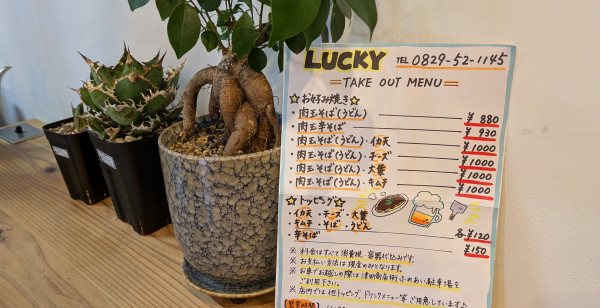 LUCKY TEL 0829-52-1145
TAKE OUT MENU
☆お好み焼き☆
・肉玉そば(うどん) ¥880
・肉玉辛そば ¥930
・肉玉そば(うどん)・イカ天 ¥1000
・肉玉そば(うどん)・チーズ ¥1000
・肉玉そば(うどん)・大葉 ¥1000
・肉玉そば(うどん)・キムチ ¥1000
☆トッピング☆
・イカ天・チーズ・大葉
キムチ・そば・うどん 各¥120
・辛そば ¥150
※料金はすべて消費税・容器代込みです。
※お支払い方法は現金のみとなります。
※お車でお越しの際は津田商店街ふれあい駐車場を
ご利用下さい。
※店内では他トッピング、ドリンクメニュー等ご用意しています♪
営業時間